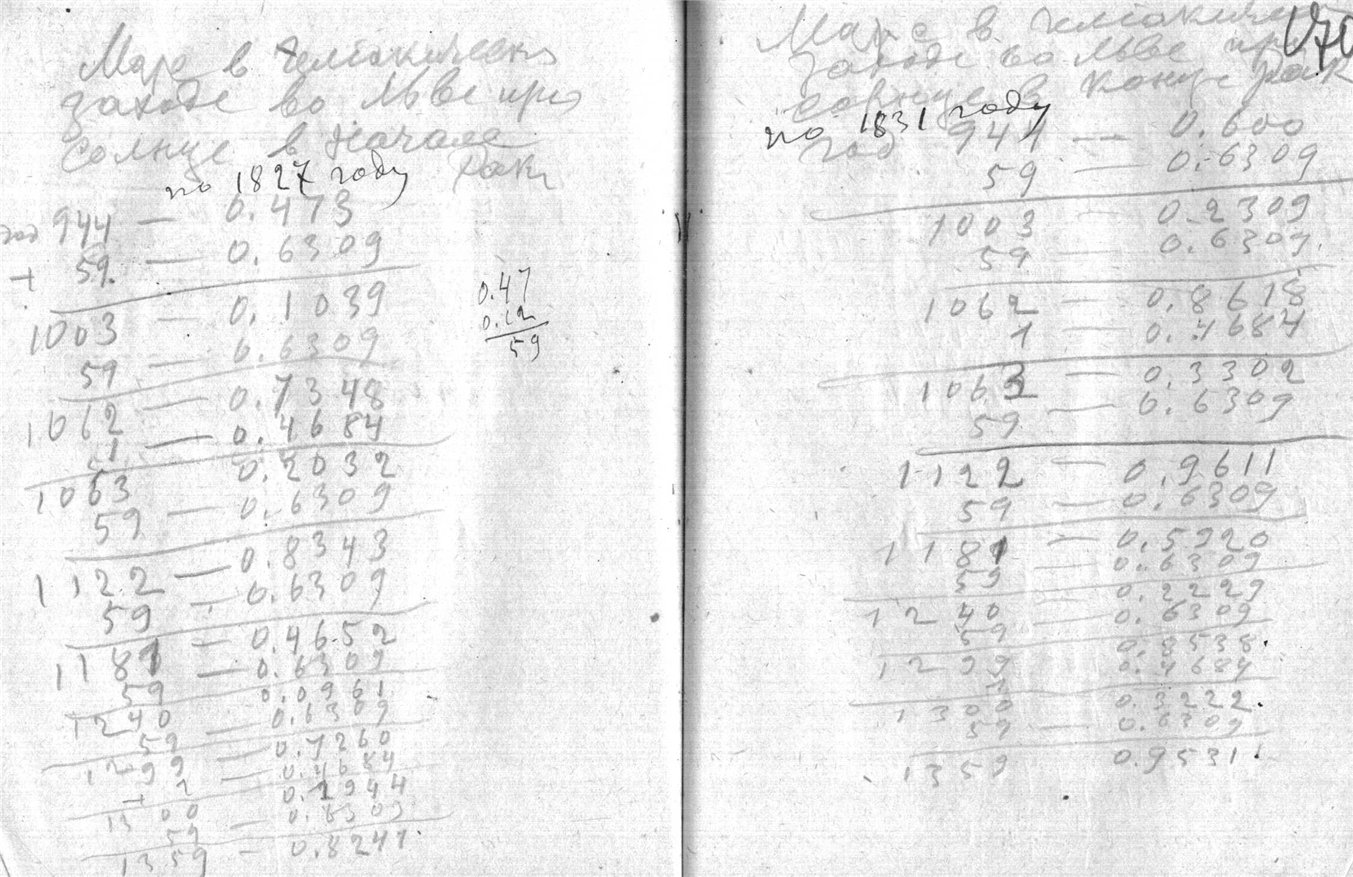 Марс в гелиакическ
заходе во Льве при
Солнце в начале
Рака
по 1827 году
год 944 — 0.473
+ 59. — 0.6309
1003 — 0.1039
59 — 0.6309
1062 — 0.7348
1 — 0.4684
1063 0.2032
59 — 0.6309
1122 — 0.8343
59 — 0.6309
1181 — 0.4652
59 — 0.6309
1240 0.0961
59 — 0.6309
1299 — 0.7260
1 — 0.4684
1300 0.1944
59 — 0.6309
1359 — 0.8247
0.47
0.12
59
170
Марс в гелиакическ
заходе во Льве при
солнце в конце Рак
по 1831 году
год 944 — 0.600
59 — 0.6309
1003 — 0.2309
59 — 0.6309.
1062 — 0.8618
1 — 0.4684
1063 — 0.3302
59 — 0.6309
1122 — 0.9611
59 — 0.6309
1181 — 0.5920
59 — 0.6309
1240 — 0.2229
59 — 0.6309
1299 0.8538.
0.4684
1300 — 0.3222.
59 — 0.6309
1359 0.9531.